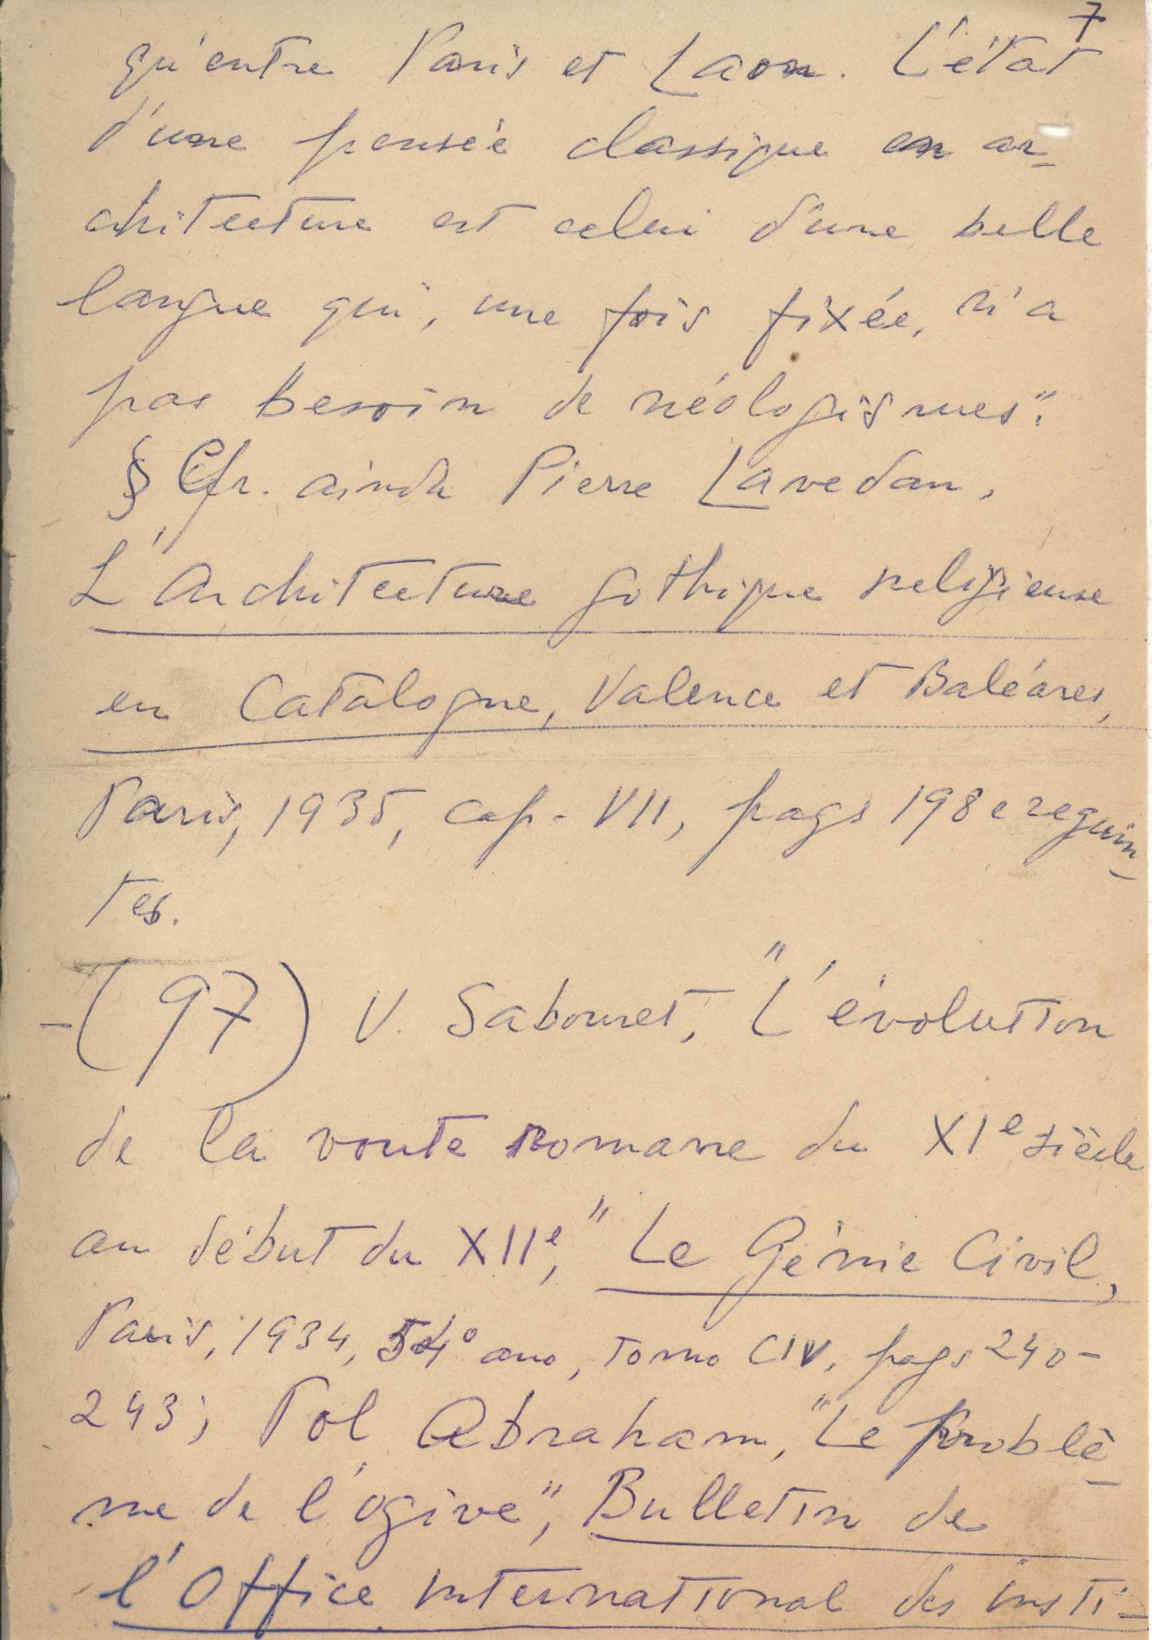 7
qu'entre Paris et Laon. L'état
d'une pensée classique en ar-
chitecture est celui d'une belle
langue qui, une fois fixée, n'a
pas besoin de néologismes".
§ Cfr. ainda Pierre Lavedan,
L'Architecture gothique religieuse
en Catalogne, Valence et Baléares,
Paris, 1935, cap. VII, pags 198 e seguin-
tes.
-(97) V. Sabouret, "L'évolution
de la voute romane du XIe siècle
au début du XIIe", Le Génie Civil,
Paris, 1934, 54º ano, tomo CIV, pags 240-
243; Pol Abraham, "Le problè-
me de l'ogive", Bulletin de
l'Office international des insti-